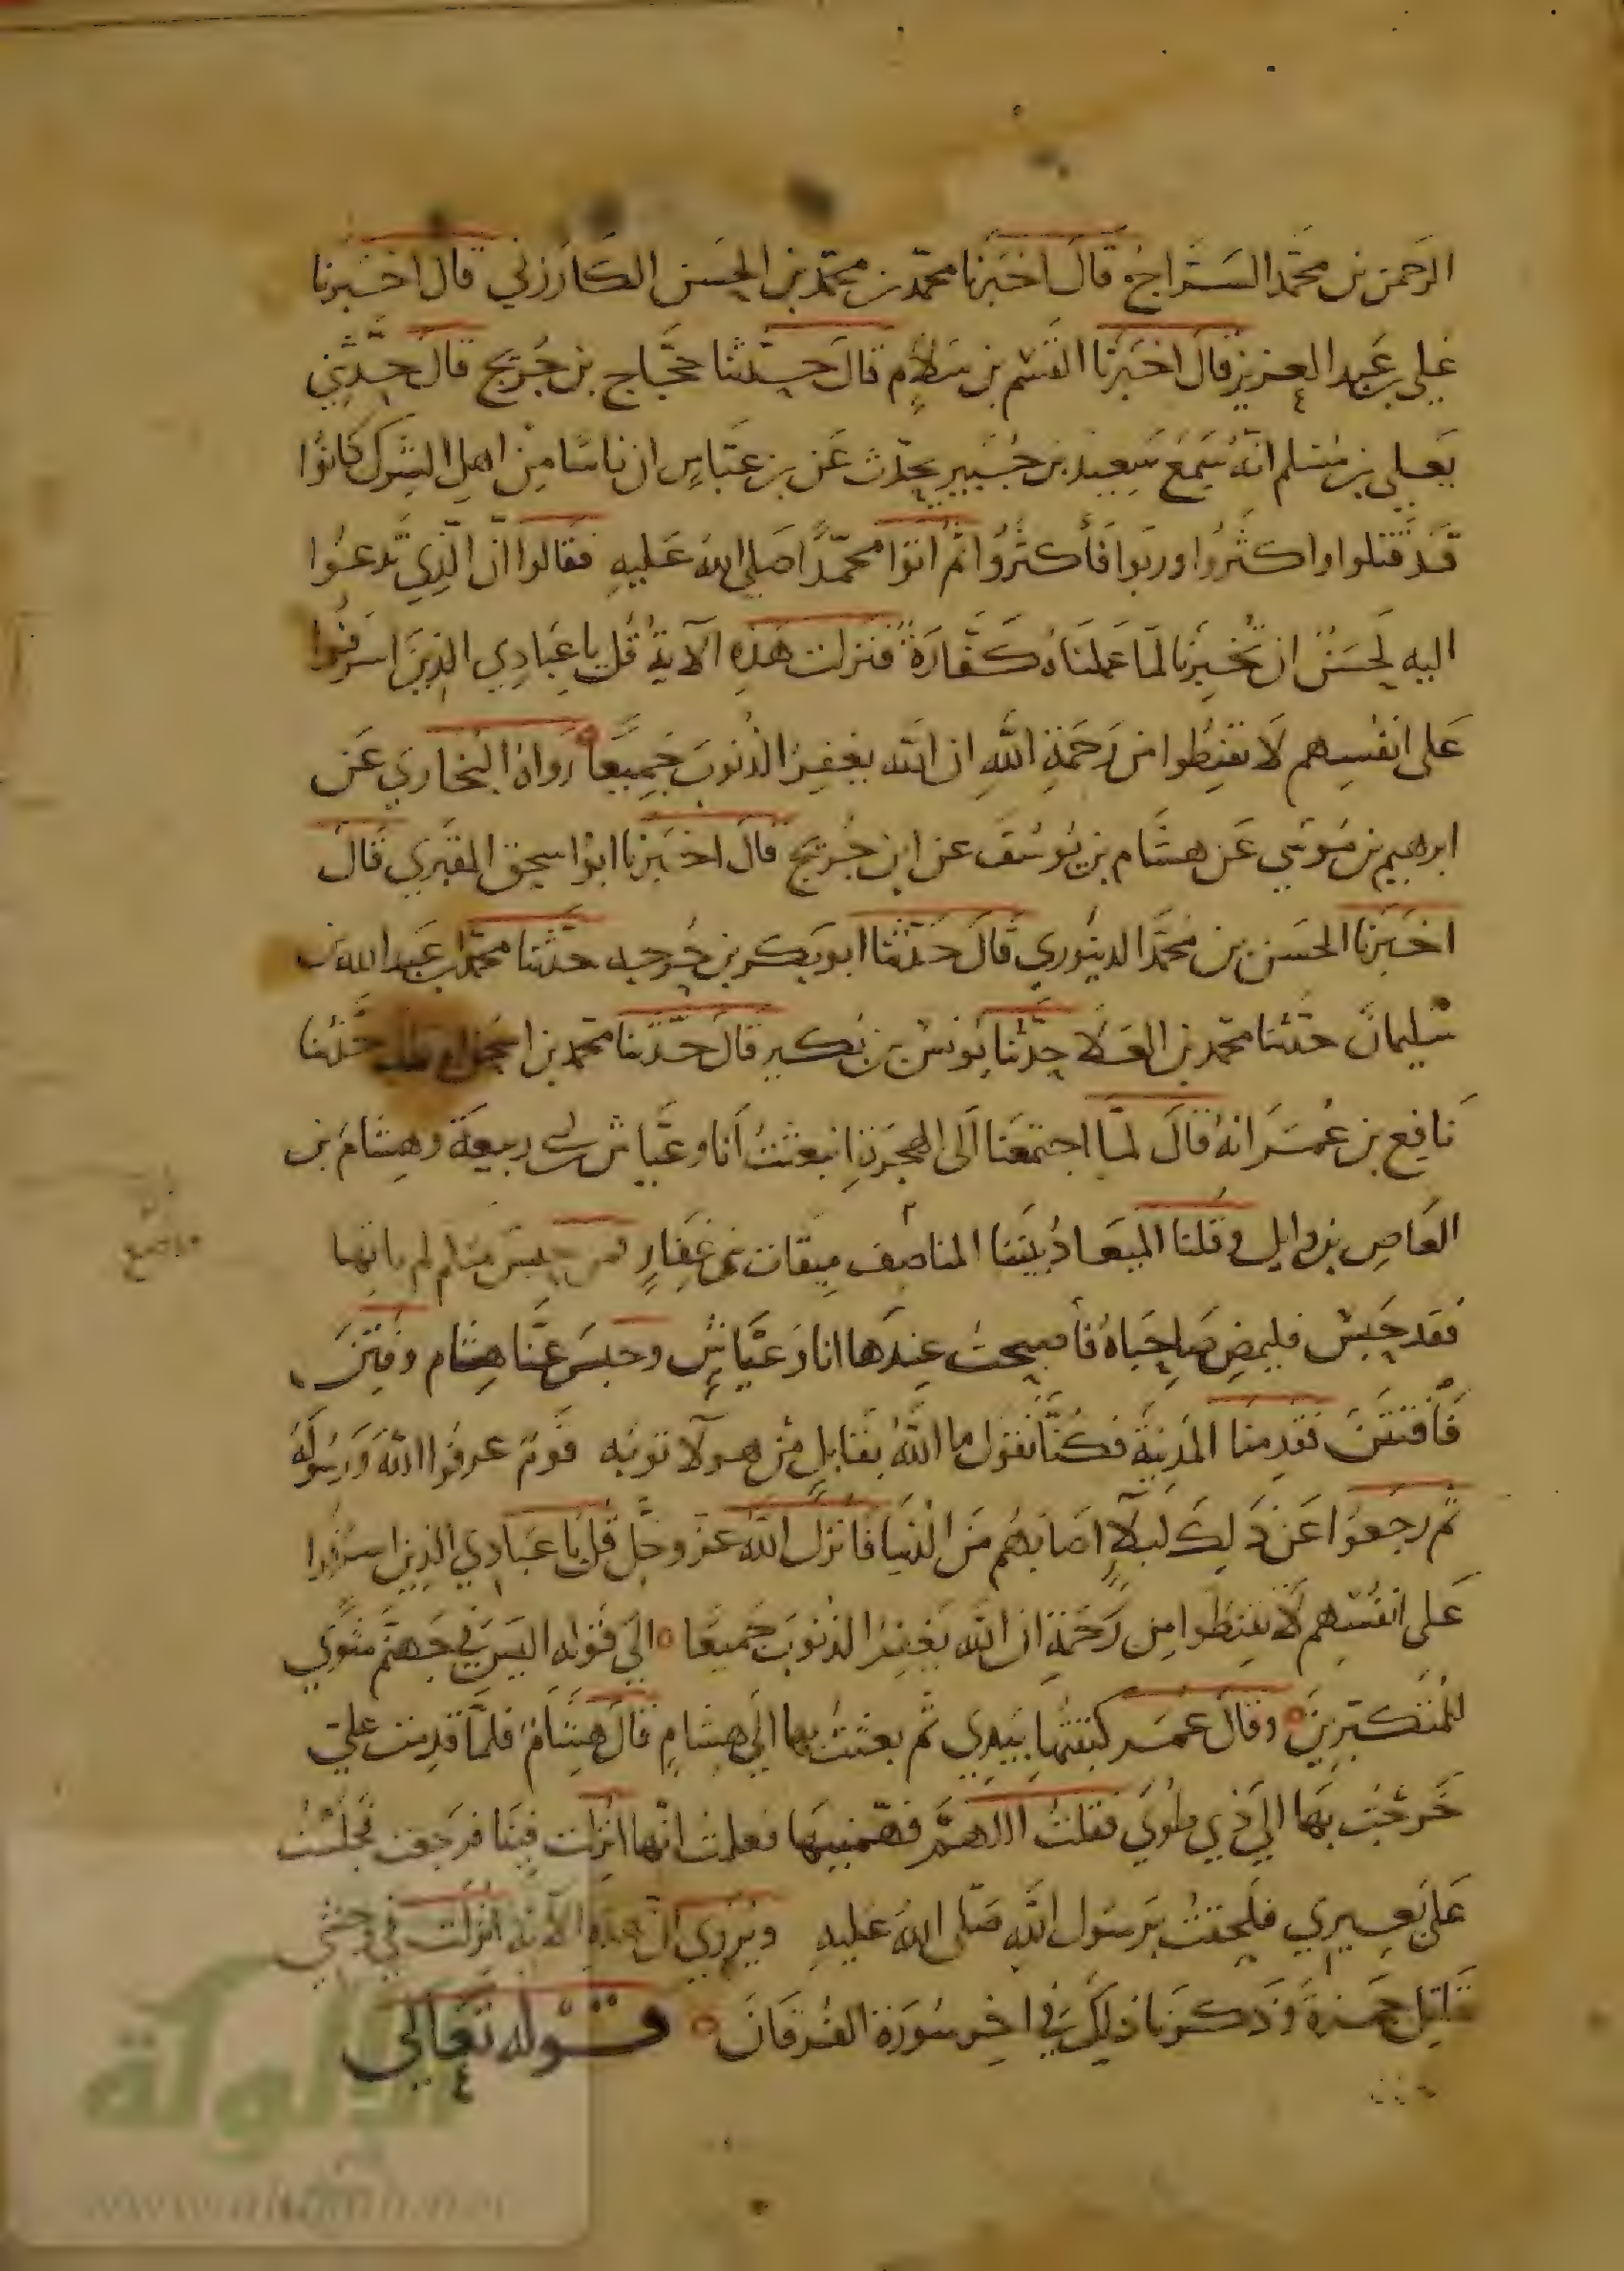 الرحمن بن محمد السراج قال اخبرنا محمد بن محمد بن الحسن الكارزلي قال اخبرنا
علي بن عبد العزيز قال اخبرنا القسم بن سلام قال حدثنا حجاج بن جريج قال حدثني
يعلى بن مسلم انه سمع سعيد بن جبير يحدث عن بن عباس ان ناسا من اهل الشرك كانوا
قد قتلوا واكثروا وربوا فأكثروا ثم اتوا محمدا صلى الله عليه فقالوا ان الذي تدعوا
اليه لحسن ان تخبرنا لما عملناه كفارة فنزلت هذه الآية قل يا عبادي الذين اسرفوا
على انفسهم لا تقنطوا من رحمة الله ان الله يغفر الذنوب جميعا رواه البخاري عن
ابرهيم بن موسى عن هشام بن يوسف عن ابن جريج قال اخبرنا ابوا سحق المقبري قال
اخبرنا الحسن بن محمد الدينوري قال حدثنا ابو بكر بن خرجه حدثنا محمد بن عبد الله بن
سليمان حدثنا محمد بن العلا حدثنا يونس بن بكير قال حدثنا محمد بن اسحق حدثنا
نافع بن عمر انه قال لما اجتمعنا الى الهجرة انبعثت انا وعياش بن ابي ربيعة وهشام بن
العاص بن وايل وقلنا الميعاد بيننا المناصف ميقات بني غفار فمن حبس منكم لم ياتها
فقد حبس فليمض صاحباه فأصبحت عندها انا وعياش وحبس عنا هشام وفتن
فأفتتن فقدمنا المدينة فكنا نقول ما الله بقابل من هولا توبه قوم عرفوا الله ورسوله
ثم رجعوا عن ذلك لبلآ اصابهم من الدنيا فانزل الله عز وجل قل يا عبادي الذين اسرفوا
على انفسهم لا تقنطوا من رحمة ان الله يغفر الذنوب جميعا الى قوله اليس في جهنم مثوى
للمتكبرين وقال عمر كتبتها بيدي ثم بعثت بها الى هشام قال هشام فلما قدمت علي
خرجت بها الى ذي طوى فقلت اللهم فهمنيها فعلمت انها انزلت فينا فرجعت فجلست
على بعيري فلحقت برسول الله صلى الله عليه ويروي ان هذه الآية انزلت في وحشي
قاتل حمزة وذكرنا ذلك في اخر سورة الفرقان قوله تعالى
الألوكة
www.alukah.net